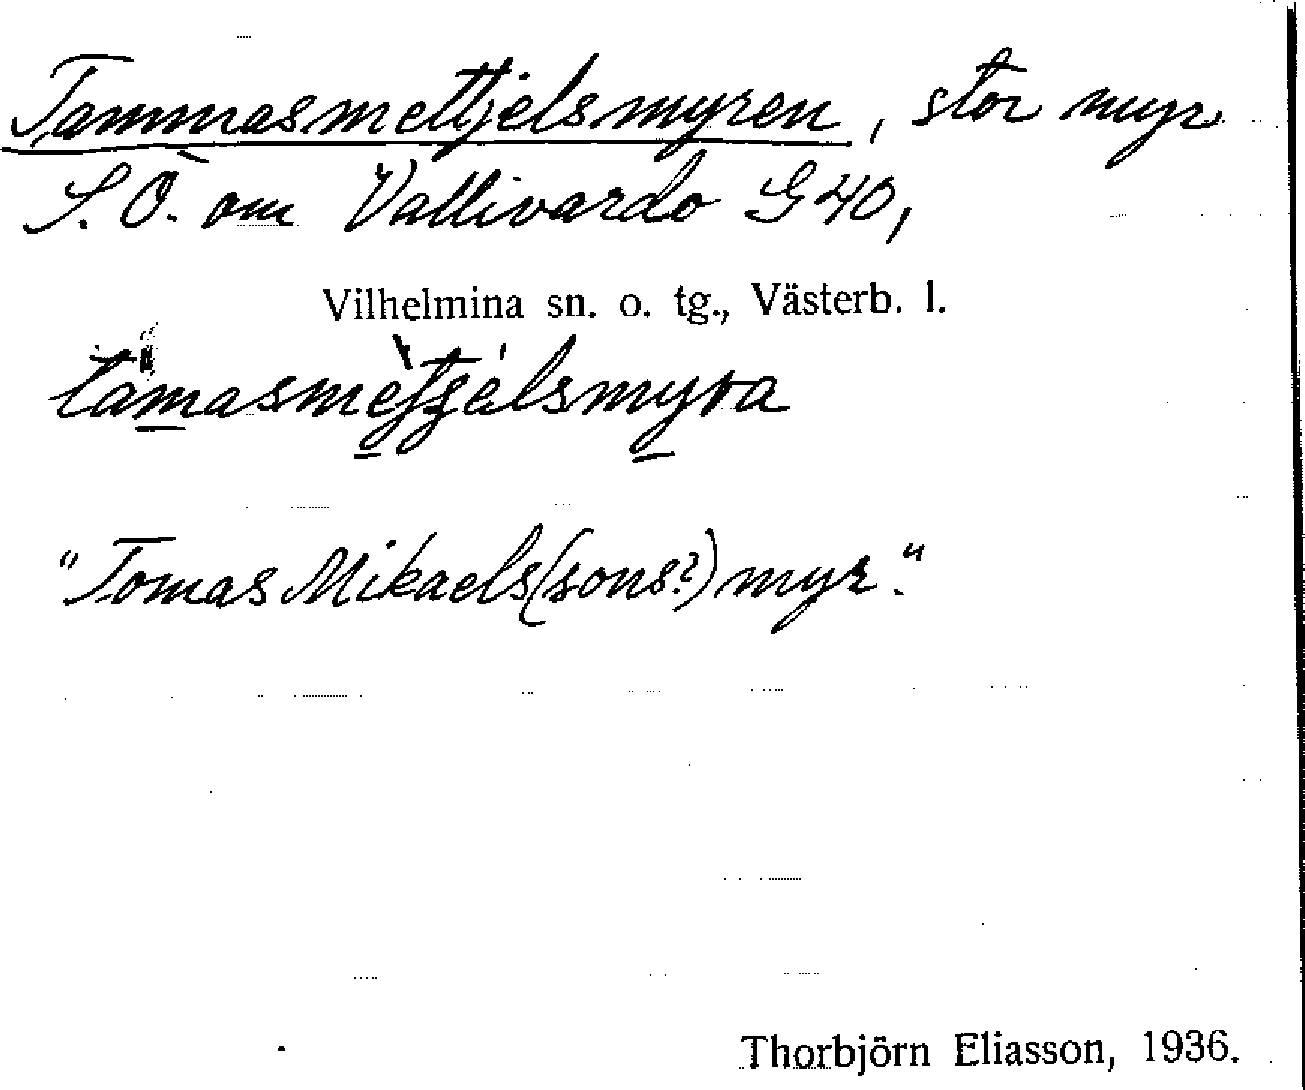 Tammasmettjelsmyren, stor myr
S.Ö. om Vallivardo G 40,
Vilhelmina sn. o. tg., Västerb. l.
"Tomas Mikaels(sons?) myr."
Thorbjörn Eliasson, 1936.